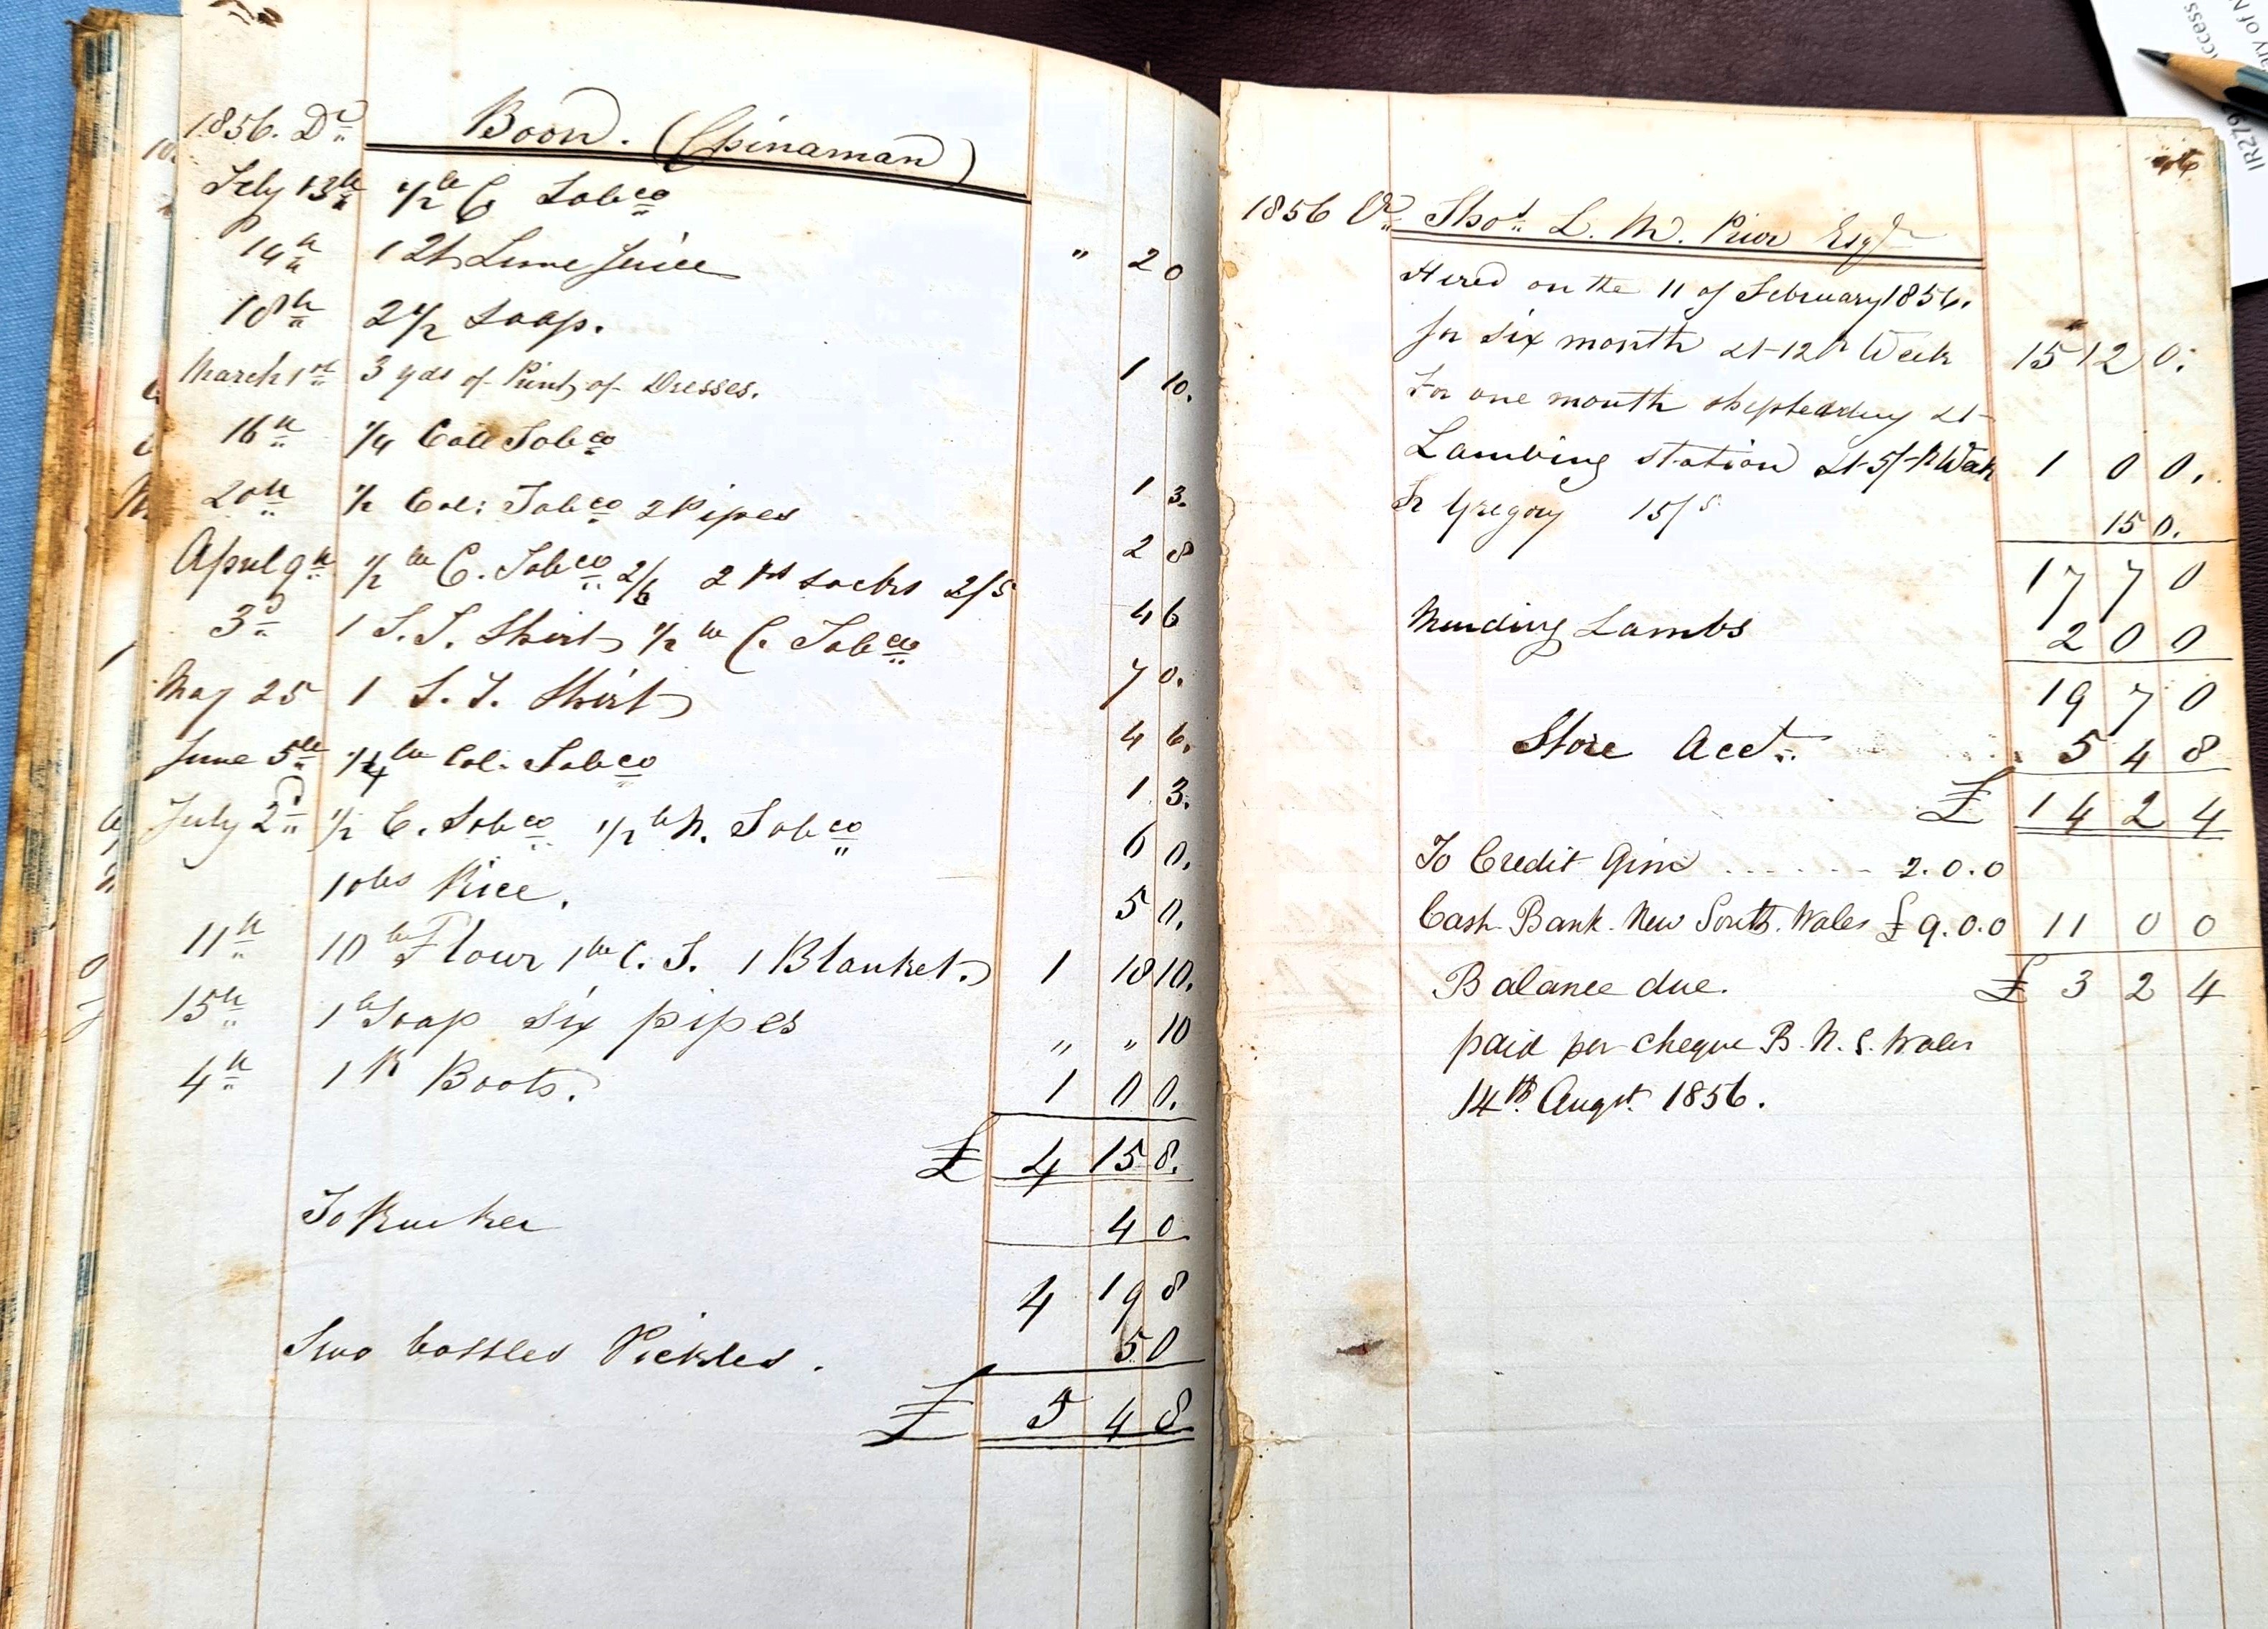 1856. Dr Boon. (Chinaman)
Feby 13th 1/2 lb C Tobco
14th 1 Qt Lime Juice " 2 0
18th 2 1/2 Soap.
March 1st 3 yds of Print of Dresses. 1 10.
16th 1/4 Col Tobco
20th 1/2 Col: Tobco 2 Pipes 1 3.
April 9th 1/2 lb C. Tobco 2/6 2 Pr Socks 2/5 2 8
3d 1 S. S. Shirt 1/2 lb C. Tobco 4 6
May 25 1 S. S. Shirt 7 0.
June 5th 1/4 lb Col. Tobco 4 6.
July 2d 1/2 C. Tobco 1/2 lb N. Tobco 1 3.
10lbs Rice. 6 0.
5 0.
11th 10 lb Flour 1 lb C. S. 1 Blanket. 1 18 10.
15th 1 lb Soap six pipes " " 10
4th 1 Pr Boots. 1 0 0.
£ 4 15 8.
To 4 0
4 19 8
Two bottles Pickles. 5 0
£ 5 4 8
1856 Cr Thos L. M. Prior Esqr
Hired on the 11 of February 1856.
for six month at 12/ Pr Week 15 12 0.
For one month shepherding at
Lambing station at 5/- Pr Week 1 0 0.
Gregory 15/5 15 0.
17 7 0
Minding Lambs 2 0 0
19 7 0
Store Acct. 5 4 8
£ 14 2 4
To Credit Gim ....... 2.0.0
Cash Bank New South Wales £ 9.0.0 11 0 0
Balance due. £ 3 2 4
paid per cheque B. N. S. Wales
14th Augst. 1856.
ccess
IR279